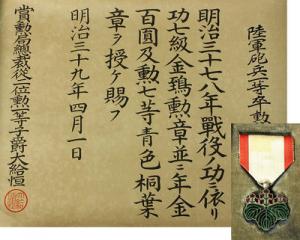 陸軍砲兵一等卒勲
明治三十七八年戦役ノ功ニ依リ
功七級金鵄勲章並ニ年金
百圓及勲七等青色桐葉
章ヲ授ケ賜フ
明治三十九年四月一日
賞勲局總裁從二位勲一等子爵大給恒